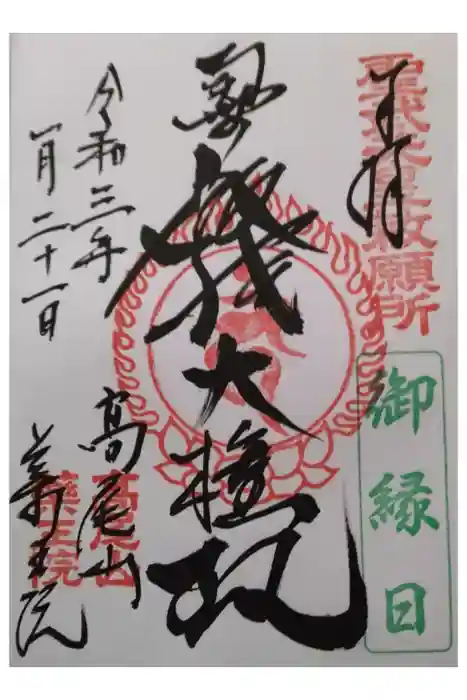 奉拝
聖武天皇勅願所
御縁日
飯縄大権現
令和三年
一月二十一日
高尾山
薬王院
高尾山
薬王院